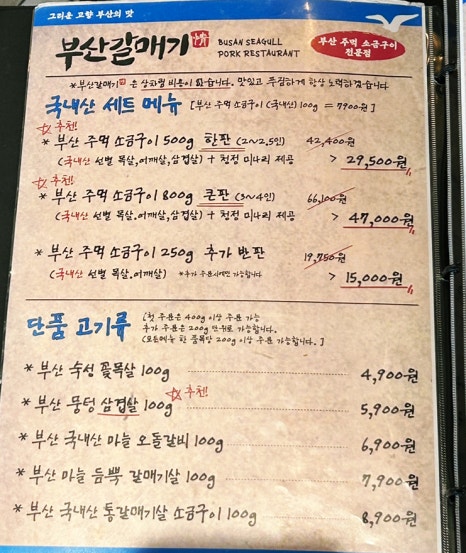 그리운 고향 부산의 맛
부산갈매기 情 BUSAN SEAGULL
PORK RESTAURANT
부산 주먹 소금구이
전문점
*부산갈매기 은 상차림 비용이 없습니다. 맛있고 푸짐하게 항상 노력하겠습니다
국내산 세트 메뉴 [부산 주먹 소금구이 (국내산) 100g = 7900원]
추천!
* 부산 주먹 소금구이 500g 한판 (2~2.5인) 42,400원
(국내산 선별 목살, 어깨살, 삼겹살) + 청정 미나리 제공 > 29,500원
추천!
* 부산 주먹 소금구이 800g 큰판 (3~4인) 66,100원
(국내산 선별 목살, 어깨살, 삼겹살) + 청정 미나리 제공 > 47,000원
* 부산 주먹 소금구이 250g 추가 반판 19,750원
(국내산 선별 목살, 어깨살) *추가 주문시에만 가능합니다 > 15,000원
단품 고기류 [첫 주문은 400g 이상 주문 가능
추가 주문은 200g 단위로 가능합니다.
(모든메뉴 한 품목당 200g 이상 주문 가능합니다.]
* 부산 숙성 꽃목살 100g 4,900원
추천!
* 부산 뭉텅 삼겹살 100g 5,900원
* 부산 국내산 마늘 오돌갈비 100g 6,900원
* 부산 마늘 듬뿍 갈매기살 100g 7,900원
* 부산 국내산 통갈매기살 소금구이 100g 8,900원